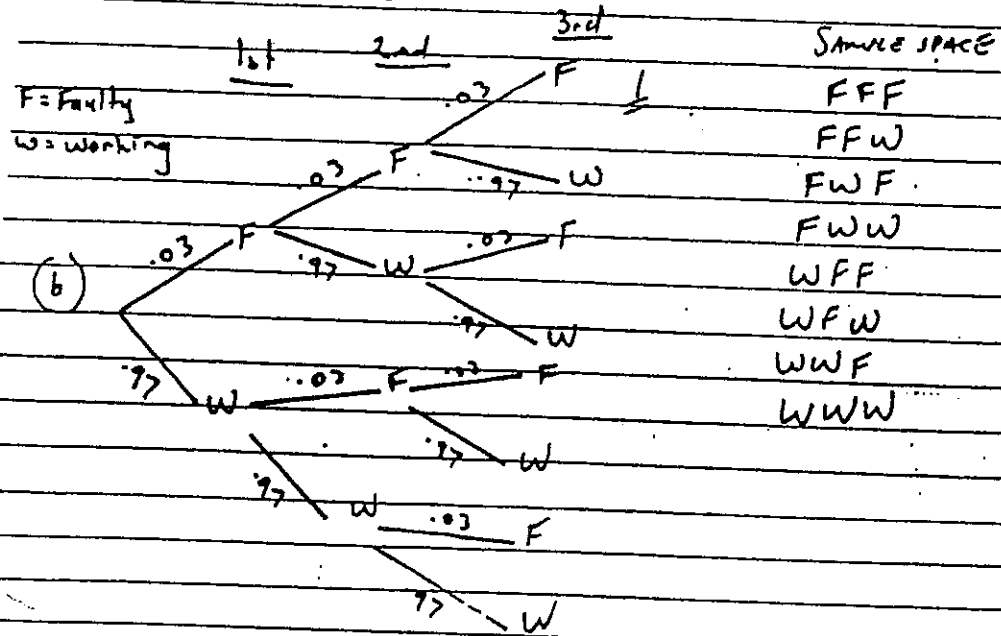 1st 2nd 3rd SAMPLE SPACE
F = Faulty
W = Working
(b)
.03 F
.97 W
.03 F
.97 W
.03 F
.97 W
.03 F
.97 W
.03 F
.97 W
.03 F
.97 W
.03 F
.97 W
FFF
FFW
FWF
FWW
WFF
WFW
WWF
WWW